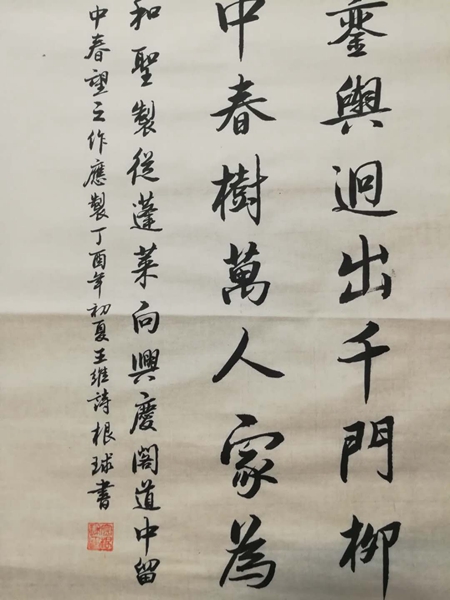 銮輿迥出千門柳
中春樹萬人家為
和聖製從蓬萊向興慶閣道中留
中春望之作應製丁酉年初夏王維詩根球書